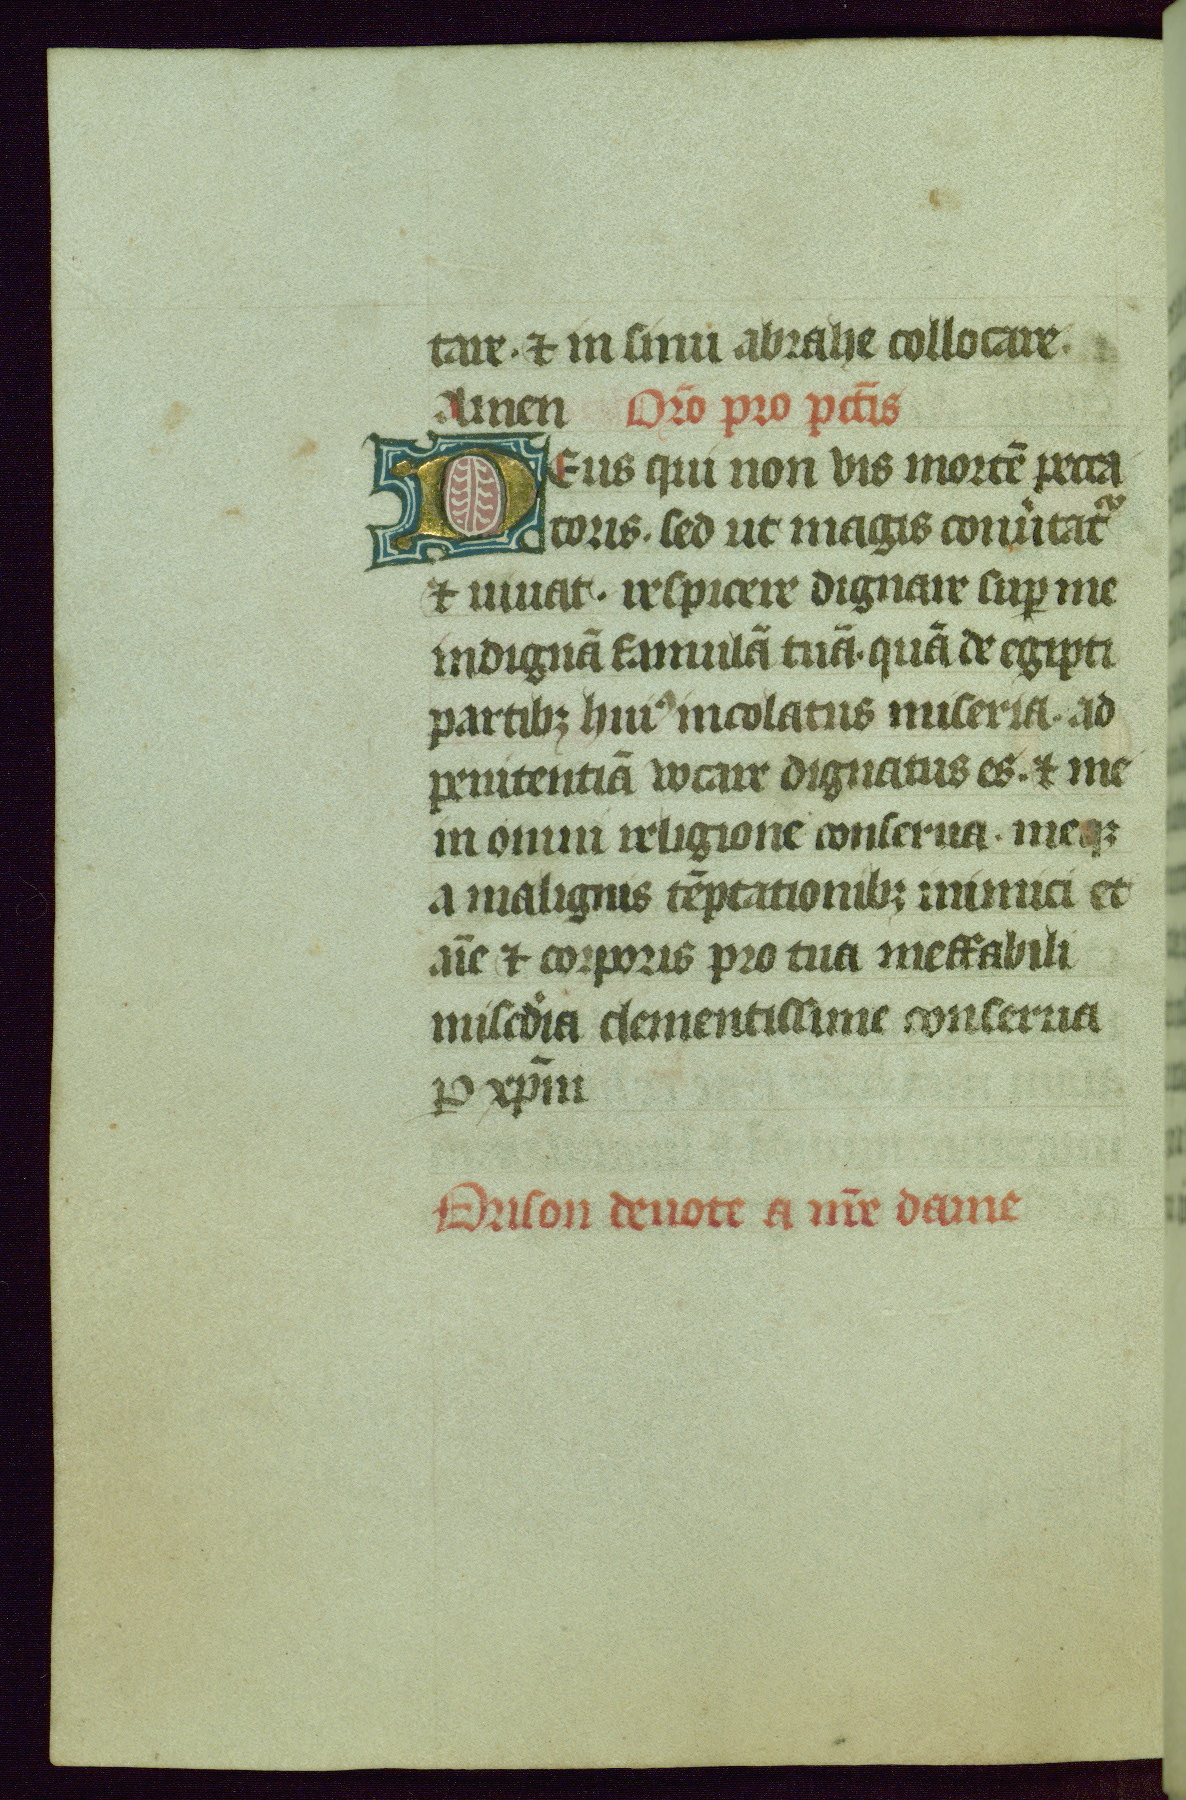 tare. ⁊ in sinu abrahe collocare.
Amen Or̄o pro pctīs
DEus qui non vis mortē pecca
toris. sed ut magis conu̾tat᷑
⁊ uiuat. respicere dignare suꝑ me
indignā famulā tuā. quā de egipti
partibꝫ huiꝰ incolatus miseria. ad
penitentiā vocare dignatus es. ⁊ me
in omni religione conserua. meqꝫ
a malignis tēptationibꝫ inimici et
aīe ⁊ corporis pro tua ineffabili
misc̾dia clementissime conserua
P xp̄m
Orison deuote a nr̄e dame